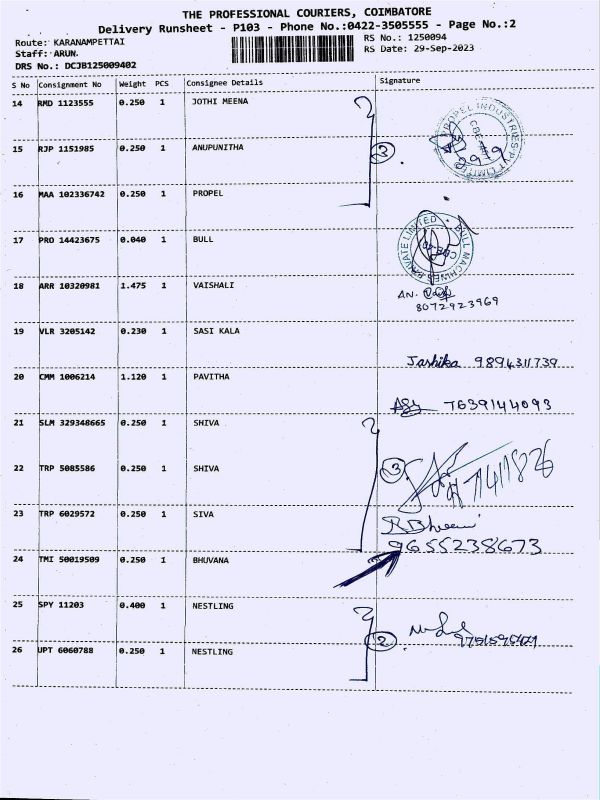 THE PROFESSIONAL COURIERS, COIMBATORE
Delivery Runsheet - P103 - Phone No.:0422-3505555 - Page No.:2
Route: KARANAMPETTAI
RS No.: 1250094
Staff: ARUN.
RS Date: 29-Sep-2023
DRS No.: DCJB125009402
S No Consignment No Weight PCS Consignee Details Signature
14 RMD 1123555 0.250 1 JOTHI MEENA
15 RJP 1151985 0.250 1 ANUPUNITHA
3
PROPEL INDUSTRIES
16 MAA 102336742 0.250 1 PROPEL
17 PRO 14423675 0.040 1 BULL
BULL MACHINES PRIVATE LIMITED
18 ARR 10320981 1.475 1 VAISHALI
AN.
8072923969
19 VLR 3205142 0.230 1 SASI KALA
Jashika 9894311739
20 CMM 1006214 1.120 1 PAVITHA
7639144093
21 SLM 329348665 0.250 1 SHIVA
22 TRP 5085586 0.250 1 SHIVA
3
23 TRP 6029572 0.250 1 SIVA
9655238673
24 TMI 50019509 0.250 1 BHUVANA
25 SPY 11203 0.400 1 NESTLING
2
26 UPT 6060788 0.250 1 NESTLING